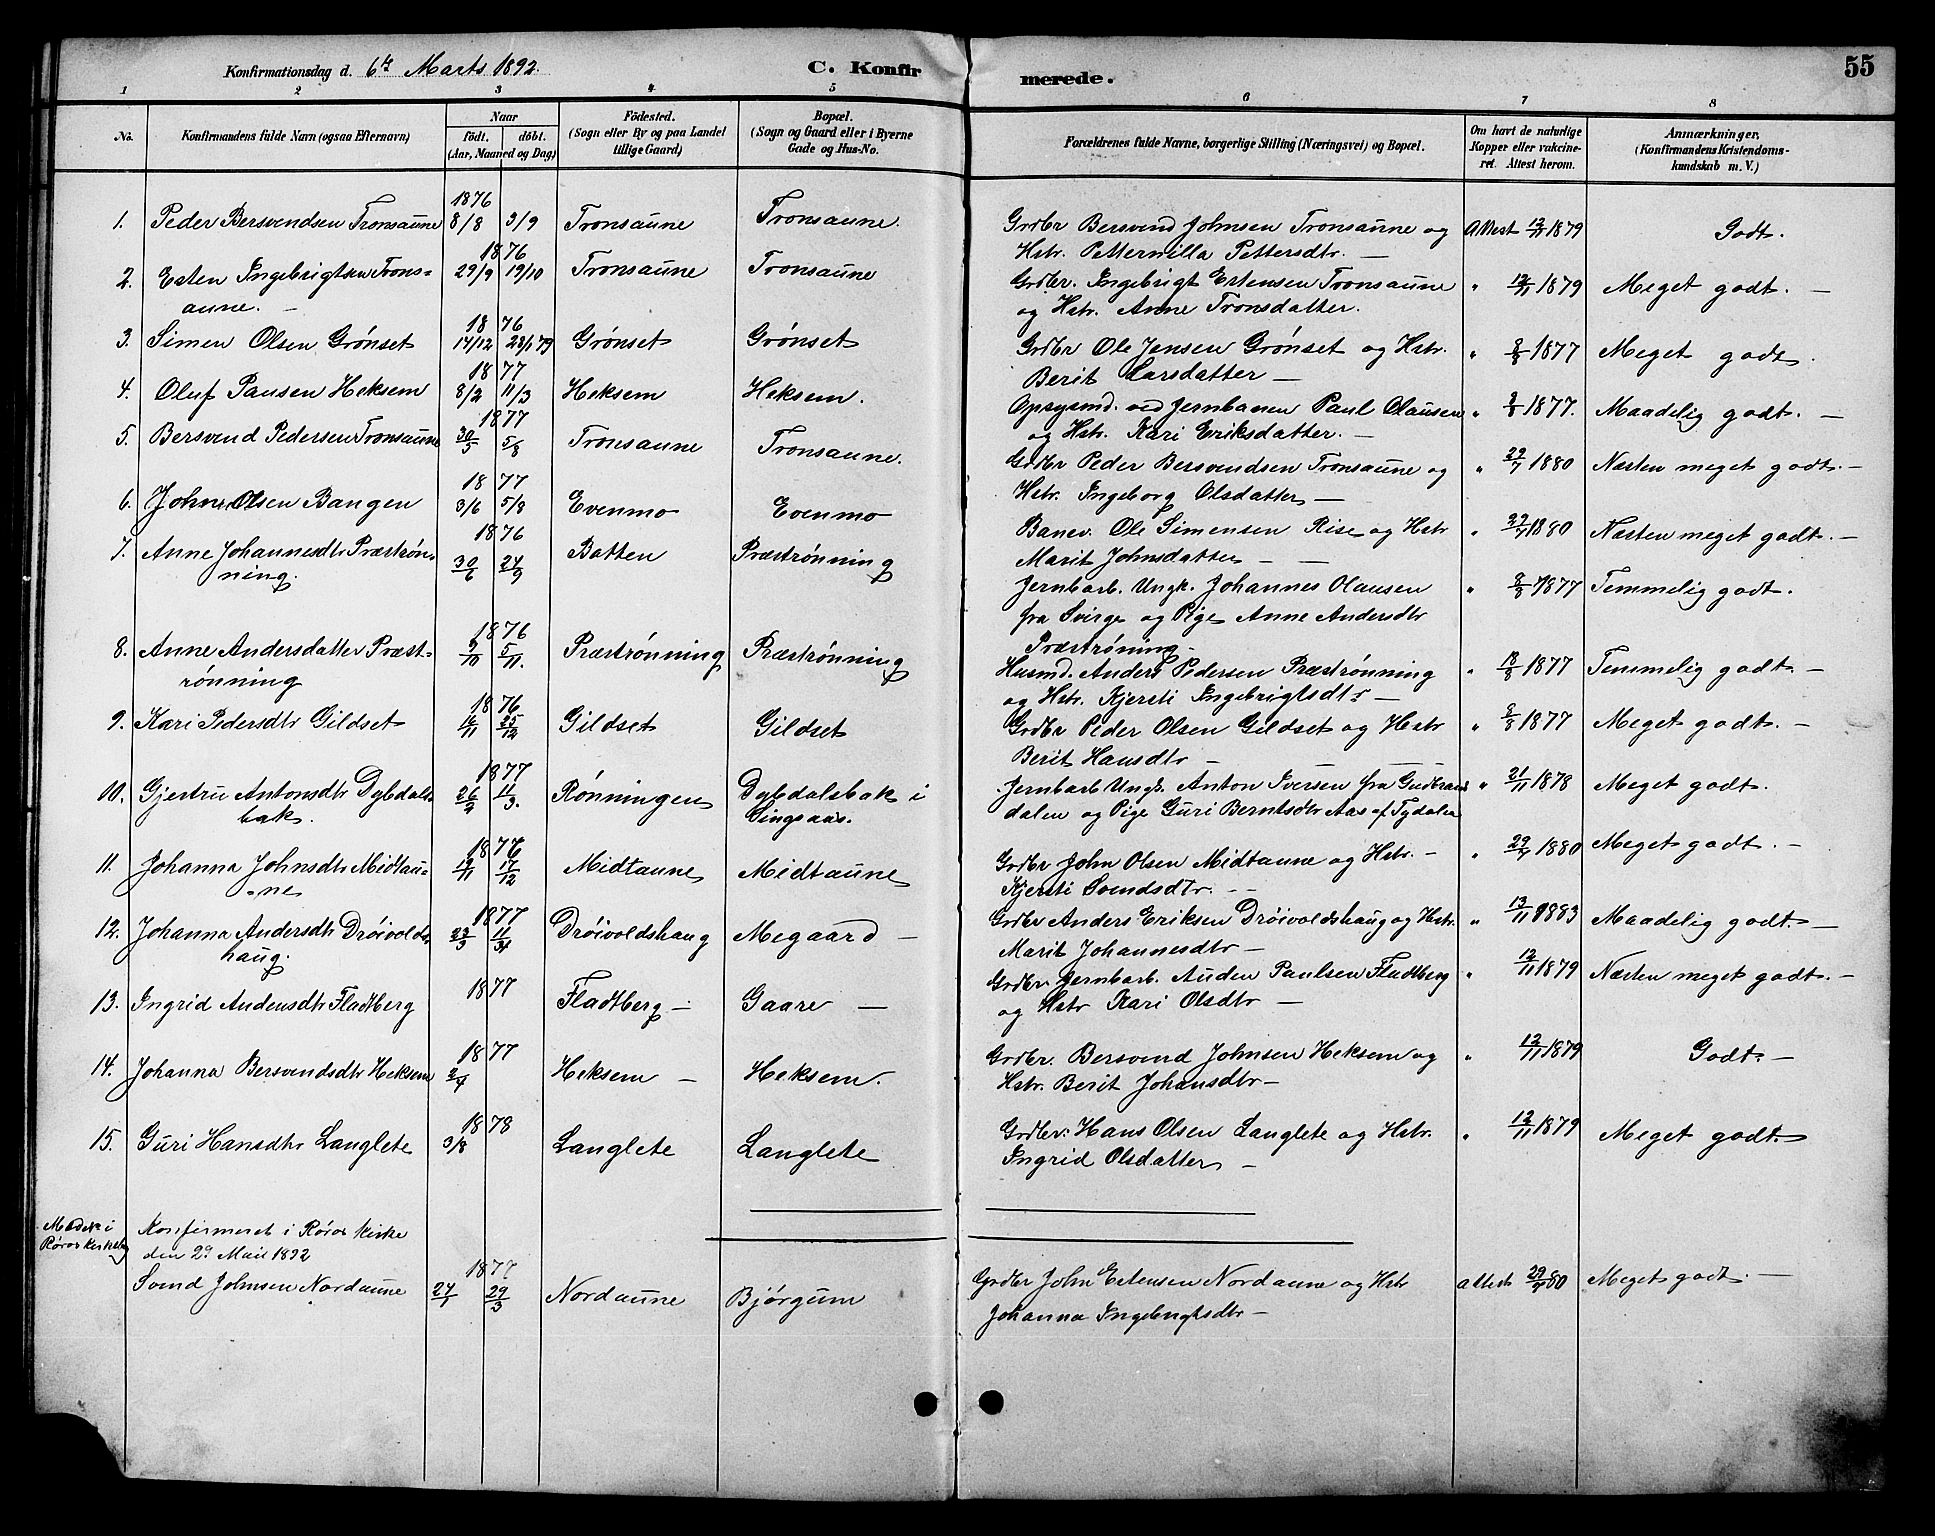 Konfirmationsdag d. 6te Marts 1892. C. Konfirmerede. 55
1 2 3 4 5 6 7 8
No. Konfirmandens fulde Navn (ogsaa Efternavn) Naar födt. döbt. (Aar, Maaned og Dag) Födested. (Sogn eller By og paa Landet tillige Gaard) Bopæl. (Sogn og Gaard eller i Byerne Gade og Hus-No. Forældrenes fulde Navne, borgerlige Stilling (Næringsvei) og Bopæl. Om havt de naturlige Kopper eller vakcineret. Attest herom. Anmærkninger, (Konfirmandens Kristendomskundskab m. V.)
1876
1. Peder Bersvendsen Tronsaune 8/8 3/9 Tronsaune Tronsaune. Grdbr Bersvend Johnsen Tronsaune og Attest 12/11 1879 Godt.
Hstr. Petternilla Pettersdtr. —
1876
2. Esten Ingebrigtsen Trons= 29/9 19/10 Tronsaune Tronsaune Grdbr. Ingebrigt Estensen Tronsaune " 12/11 1879 Meget godt. —
aune. — og Hstr. Anne Tronsdatter.
1876
3. Simen Olsen Grønset 14/12 28/1 79 Grønset Grønset Grdbr Ole Jensen Grønset og Hstr. " 8/8 1877 Meget godt.
Berit Larsdatter —
1877
4. Oluf Paulsen Heksem 8/2 11/3 Heksem Heksem. Opsysmd. ved Jernbanen Paul Olausen " 8/8 1877. Maadelig godt. —
og Hstr. Kari Eriksdatter. —
1877
5. Bersvend Pedersen Tronsaune 30/5 5/8 Tronsaune Tronsaune. Grdbr Peder Bersvendsen Tronsaune og " 29/7 1880 Næsten meget godt. —
Hstr. Ingeborg Olsdatter —
1877
6. John Olsen Bangen 3/6 5/8 Evenmo Evenmo Banev. Ole Simensen Rise og Hstr " 29/7 1880 Næsten meget godt. —
Marit Johnsdatter — —
1876
7. Anne Johannesdtr Præstrøn= 30/6 24/9 Batten Præstrønning Jernbarb. Ungk. Johannes Olausen " 8/8 1877 Temmelig godt.
ning. fra Sverge og Pige Anne Andersdtr
Præstrøning —
1876
8. Anne Andersdatter Præst= 9/10 5/11. Præstrønning Præstrønning Husmd. Anders Pedersen Præstrønning " 18/8 1877 Temmelig godt. —
rönning og Hstr. Kjersti Ingebrigtsdtr —
1876
9. Kari Pedersdtr Gildset 16/11 25/12 Gildset Gildset Grdbr Peder Olsen Gildset og Hstr " 8/8 1877 Meget godt. —
Berit Hansdtr —
1877
10. Gjertru Antonsdtr Dybdals 26/2 11/3. Rønningen Dybdalsbak i Jernbarb Ungk. Anton Iversen fra Gudbrands " 21/11 1878 Meget godt.
bak. Singsaas. dalen og Pige Guri Berntsdtr Aas af Tydalen
1876
11. Johanna Johnsdtr Midtau= 19/11 17/12 Midtaune Midtaune Grdbr John Olsen Midtaune og Hstr. — " 29/7 1880 Meget godt. —
ne Kjersti Svendsdtr. —
1877
12. Johanna Andersdtr Dröivolds 23/3 11/3 Dröivoldshaug Megaard — Grdbr Anders Eriksen Dröivoldshaug og Hstr. " 13/11 1883 Maadelig godt. —
haug. Marit Johannesdtr —
1877
13. Ingrid Audensdtr Fladberg Fladberg — Gaare — Grdbr. Jernbarb. Auden Paulsen Fladberg " 12/11 1879 Næsten meget godt. —
og Hstr Kari Olsdtr —
1877
14. Johanna Bersvendsdtr Heksem 2/4 Heksem — Heksem. Grdbr. Bersvend Johnsen Heksem og " 12/11 1879 Godt. —
Hstr. Berit Johansdtr —
1878
15. Guri Hansdtr Langlete 3/8 Langlete Langlete Grdbr. Hans Olsen Langlete og Hstr. " 12/11 1879 Meget godt.
Ingrid Olsdatter —
Røros Kirkebog Konfirmeret i Røros Kirke
den 29 Mai 1892
1877
Svend Johnsen Nordaune 27/1 29/3 Nordaune Bjørgum Grdbr John Estensen Nordaune og Hstr attest 29/7 80 Meget godt. —
Johanna Ingebrigtsdtr —